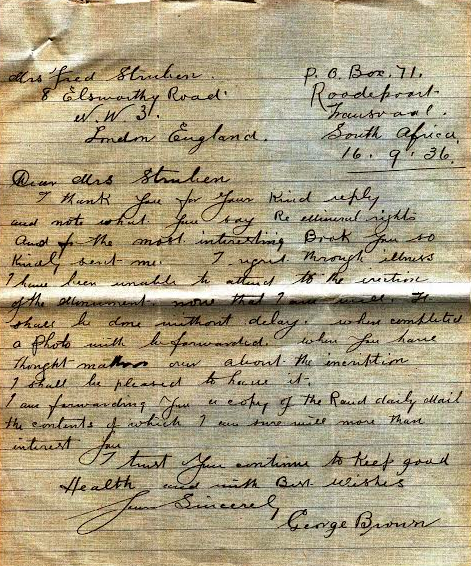 Mrs Fred Struben.
8 Elsworthy Road.
N. W 3.
London England.
P. O. Box. 71.
Roodepoort
Transvaal.
South Africa
16. 9. 36.
Dear Mrs Struben
I thank you for your kind reply
and note what you say Re mineral rights
And for the most interesting Book you so
kindly sent me. I regret through illness
I have been unable to attend to the erection
of the monument. now that I am well. It
shall be done without delay. when completed
a photo will be forwarded. when you have
thought matters over about the inscription
I shall be pleased to have it.
I am forwarding you a copy of the Rand daily Mail
the contents of which I am sure will more than
interest you
I trust you continue to keep good
Health and with Best wishes
Yours Sincerely
George Brown